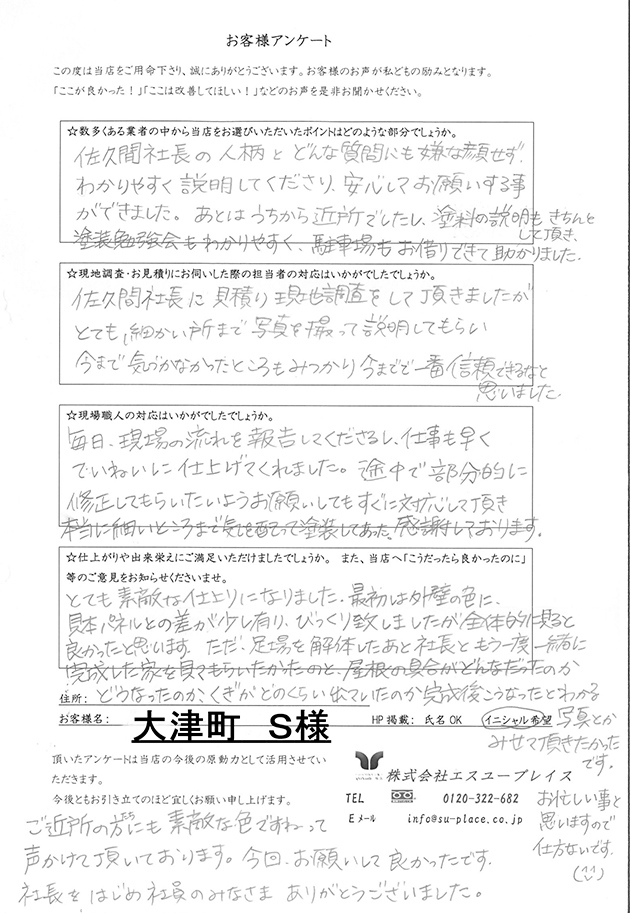 お客様アンケート
この度は当店をご用命下さり、誠にありがとうございます。お客様のお声が私どもの励みとなります。
「ここが良かった！」「ここは改善してほしい！」などのお声を是非お聞かせください。
☆数多くある業者の中から当店をお選びいただいたポイントはどのような部分でしょうか。
佐久間社長の人柄とどんな質問にも嫌な顔せず、
わかりやすく説明してくださり、安心してお願いする事
ができました。あとはうちから近所でしたし、塗料の説明もきちんと
して頂き、
塗装勉強会もわかりやすく、駐車場もお借りできて助かりました。
☆現地調査・お見積りにお伺いした際の担当者の対応はいかがでしたでしょうか。
佐久間社長に見積り現地調査をして頂きましたが
とても細かい所まで写真を撮って説明してもらい
今まで気づかなかったところもみつかり今までで一番信頼できるなと
思いました。
☆現場職人の対応はいかがでしたでしょうか。
毎日、現場の流れを報告してくださるし、仕事も早く
ていねいに仕上げてくれました。途中で部分的に
修正してもらいたいようお願いしてもすぐに対応して頂き
本当に細いところまで気を配って塗装してあった。感謝しております。
☆仕上がりや出来栄えにご満足いただけましたでしょうか。 また、当店へ「こうだったら良かったのに」
等のご意見をお知らせくださいませ。
とても素敵な仕上りになりました。最初は外壁の色に、
見本パネルとの差が少し有り、びっくり致しましたが全体的に見ると
良かったと思います。ただ、足場を解体したあと社長ともう一度一緒に
完成した家を見てもらいたかったのと、屋根の具合がどんなだったのか
住所：
どうなったのか、くぎがどのくらい出ていたのか完成後こうなったとわかる
お客様名：
大津町 S様
HP掲載： 氏名OK イニシャル希望
写真とか
みせて頂きたかった
です。
頂いたアンケートは当店の今後の原動力として活用させてい
ただきます。
今後ともお引き立てのほど宜しくお願い申し上げます。
株式会社エスユープレイス
TEL 0120-322-682
Eメール info@su-place.co.jp
お忙しい事と
思いますので
仕方ないです。
ご近所の方にも素敵な色ですねって
声かけて頂いております。今回、お願いして良かったです。
社長をはじめ社員のみなさま ありがとうございました。